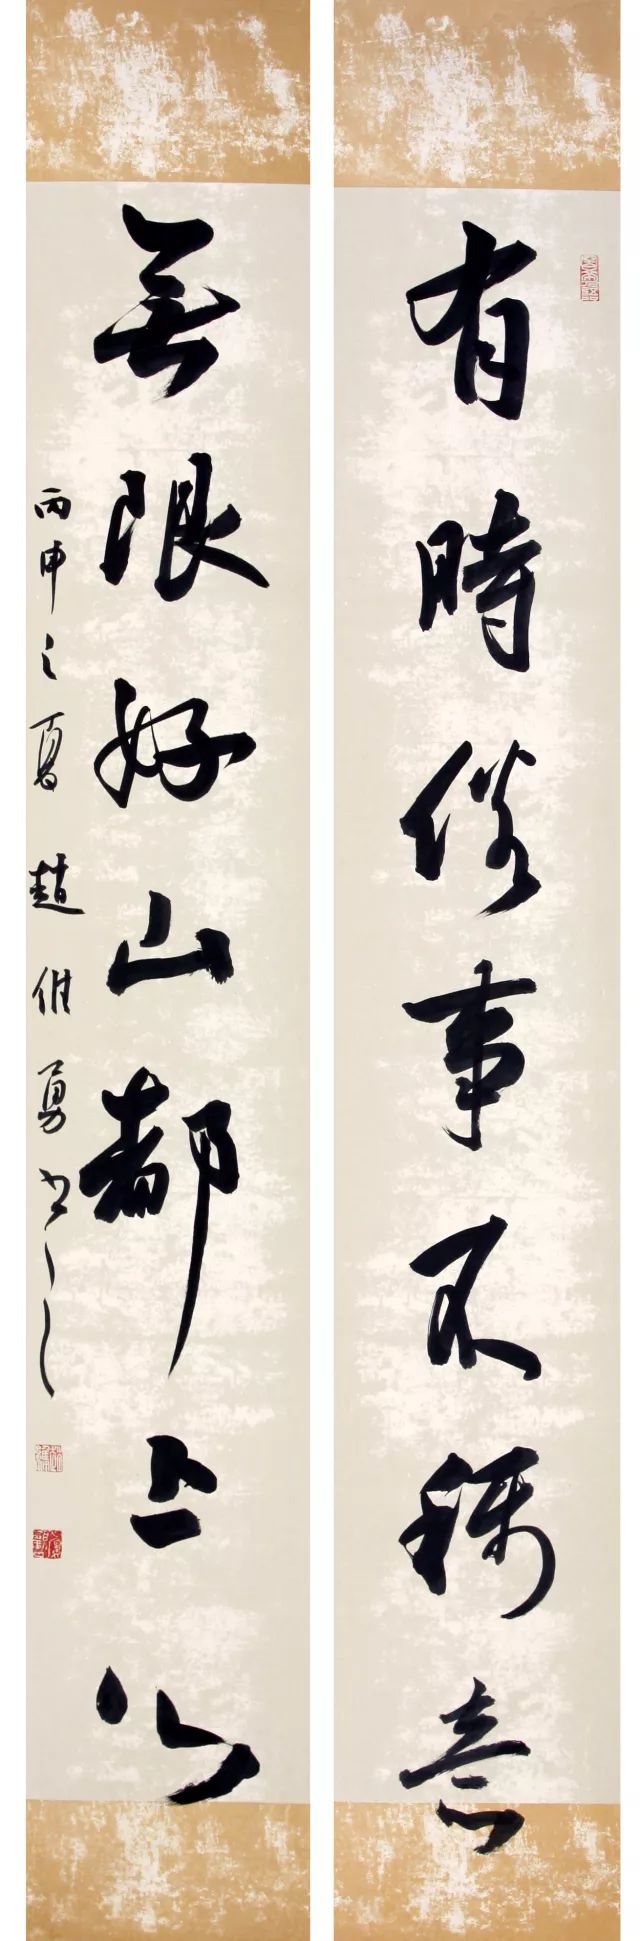 有時俗事不稱意
無限好山都上心
丙申之夏 趙雁勇書